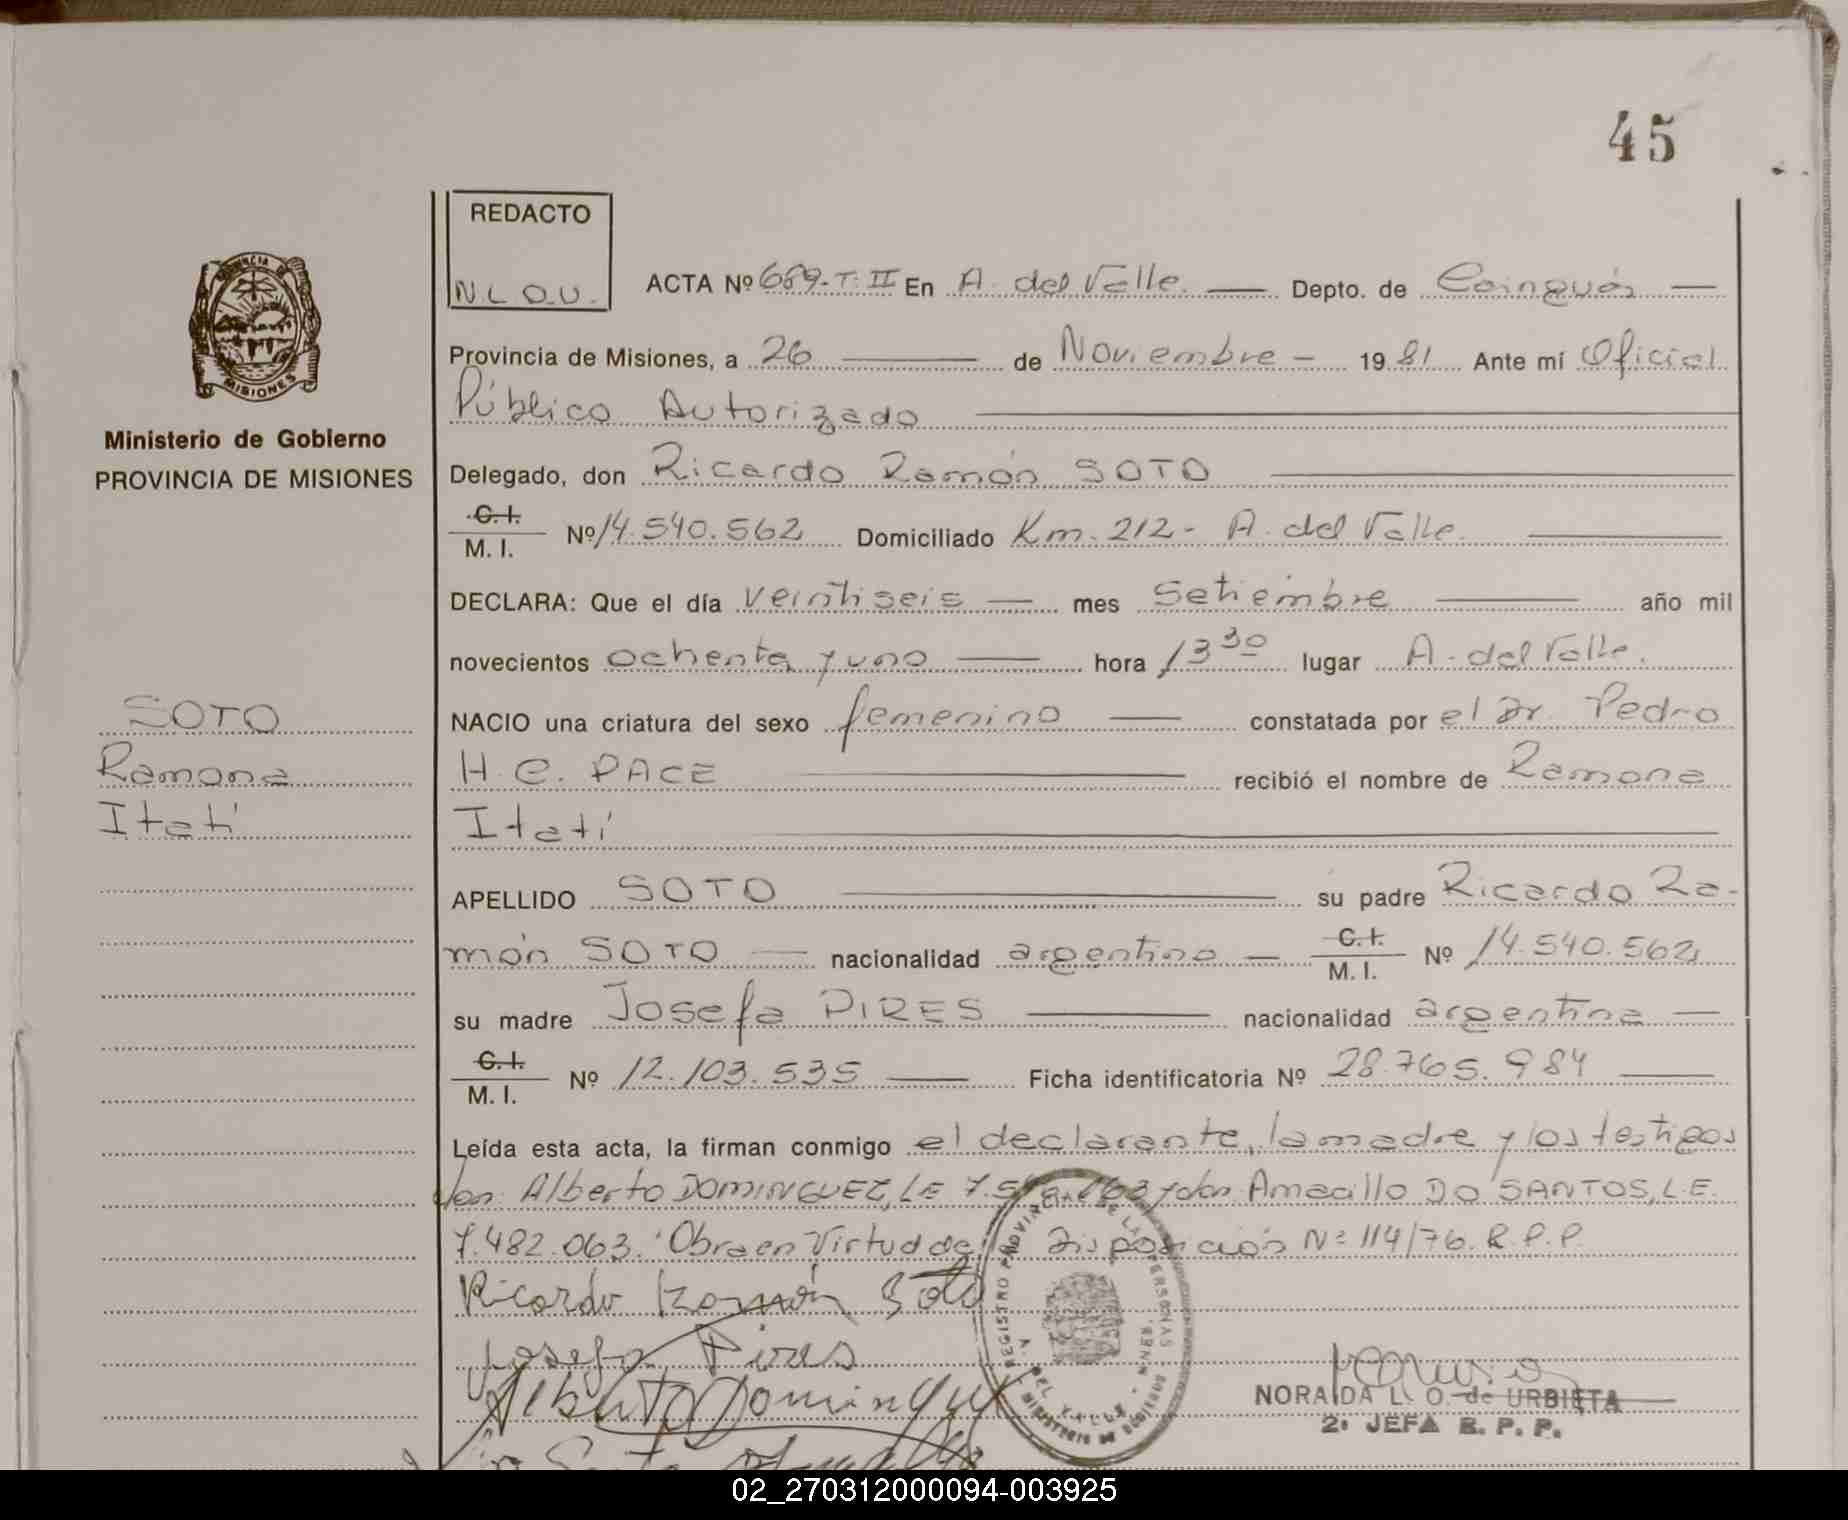 45
REDACTO
N L O.U.
ACTA Nº 689-T.II En A. del Valle. Depto. de Cainguás
Provincia de Misiones, a 26 de Noviembre - 1981 Ante mí Oficial
Público Autorizado
MISIONES
Ministerio de Gobierno
PROVINCIA DE MISIONES
Delegado, don Ricardo Ramón SOTO
C. I.
M. I. Nº 14.540.562 Domiciliado Km. 212 - A. del Valle.
DECLARA: Que el día veintiseis mes Setiembre año mil
novecientos ochenta y uno hora 13 30 lugar A. del Valle.
SOTO
Ramona
Itatí
NACIO una criatura del sexo femenino constatada por el Dr. Pedro
H. C. PACE recibió el nombre de Ramona
Itatí
APELLIDO SOTO su padre Ricardo Ra-
món SOTO nacionalidad argentino C. I. M. I. Nº 14.540.562
su madre Josefa PIRES nacionalidad argentina
C. I.
M. I. Nº 12.103.535 Ficha identificatoria Nº 28.765.984
Leída esta acta, la firman conmigo el declarante, la madre y los testigos
don: Alberto DOMINGUEZ, LE 7.5 163 y don: Amacillo DO SANTOS, L.E.
7.482.063. Obra en Virtud de Disposición Nº 114/76. R.P.P.
Ricardo Ramón Soto
Josefa Pires
Alberto Dominguez
REGISTRO PROVINCIAL DE LAS PERSONAS
A. DEL VALLE
NORAIDA L. O. de URBIETA
2º JEFA R. P. P.
02_270312000094-003925